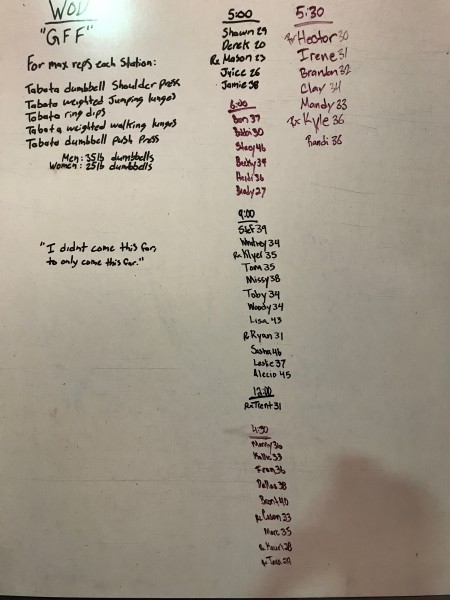 WOD
"GFF"
For max reps each Station:
Tabata dumbbell Shoulder press
Tabata weighted Jumping lunges
Tabata ring dips
Tabata weighted walking lunges
Tabata dumbbell Push Press
Men: 35lb dumbbells
Women: 25lb dumbbells
"I didnt come this far,
to only come this far."
5:00
Shawn 29
Derek 20
Rx Mason 23
Jamie 38
6:00
Dan 37
Bobbi 30
Stacy 46
Becky 34
Heidi 36
Brady 27
9:00
Stef 39
34
Rx 35
Tom 35
Missy 38
Toby 34
Woody 34
Lisa 43
Rx Ryan 31
Sasha 46
Leslie 37
Alecio 45
12:00
Rx Trent 31
4:30
36
Kallie 33
Fran 36
Dallas 38
Brent 40
Rx 33
Marc 35
Rx 28
Rx
5:30
Rx Hector 30
Irene 31
Brandon 32
Clay 34
Mandy 33
Rx Kyle 36
Randi 36